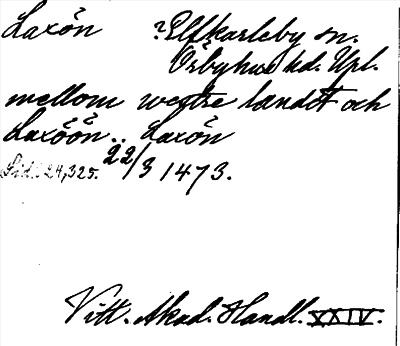 Laxön ? Elfkarleby sn.
Örbyhus hd. Upl.
mellom westre landet och
Laxöön.. Laxön
Sid. 24,325. 22/3 1473.
Vitt. Akad. Handl. XXIV.